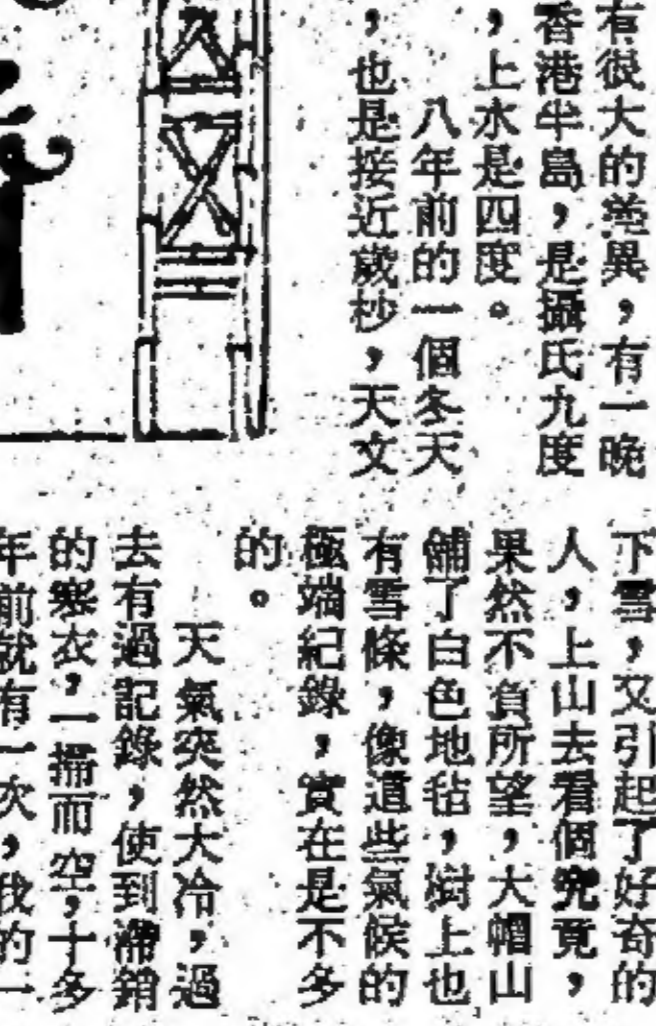 有很大的差異，有一晚
香港半島，是攝氏九度
，上水是四度。
八年前的一個冬天
，也是接近歲杪，天文
下雪，又引起了好奇的
人，上山去看個究竟，
果然不負所望，大帽山
舖了白色地毡，樹上也
有雪條，像這些氣候的
極端紀錄，實在是不多
的。
天氣突然大冷，過
去有過記錄，使到滯銷
的寒衣，一掃而空，十多
年前就有一次，我的一